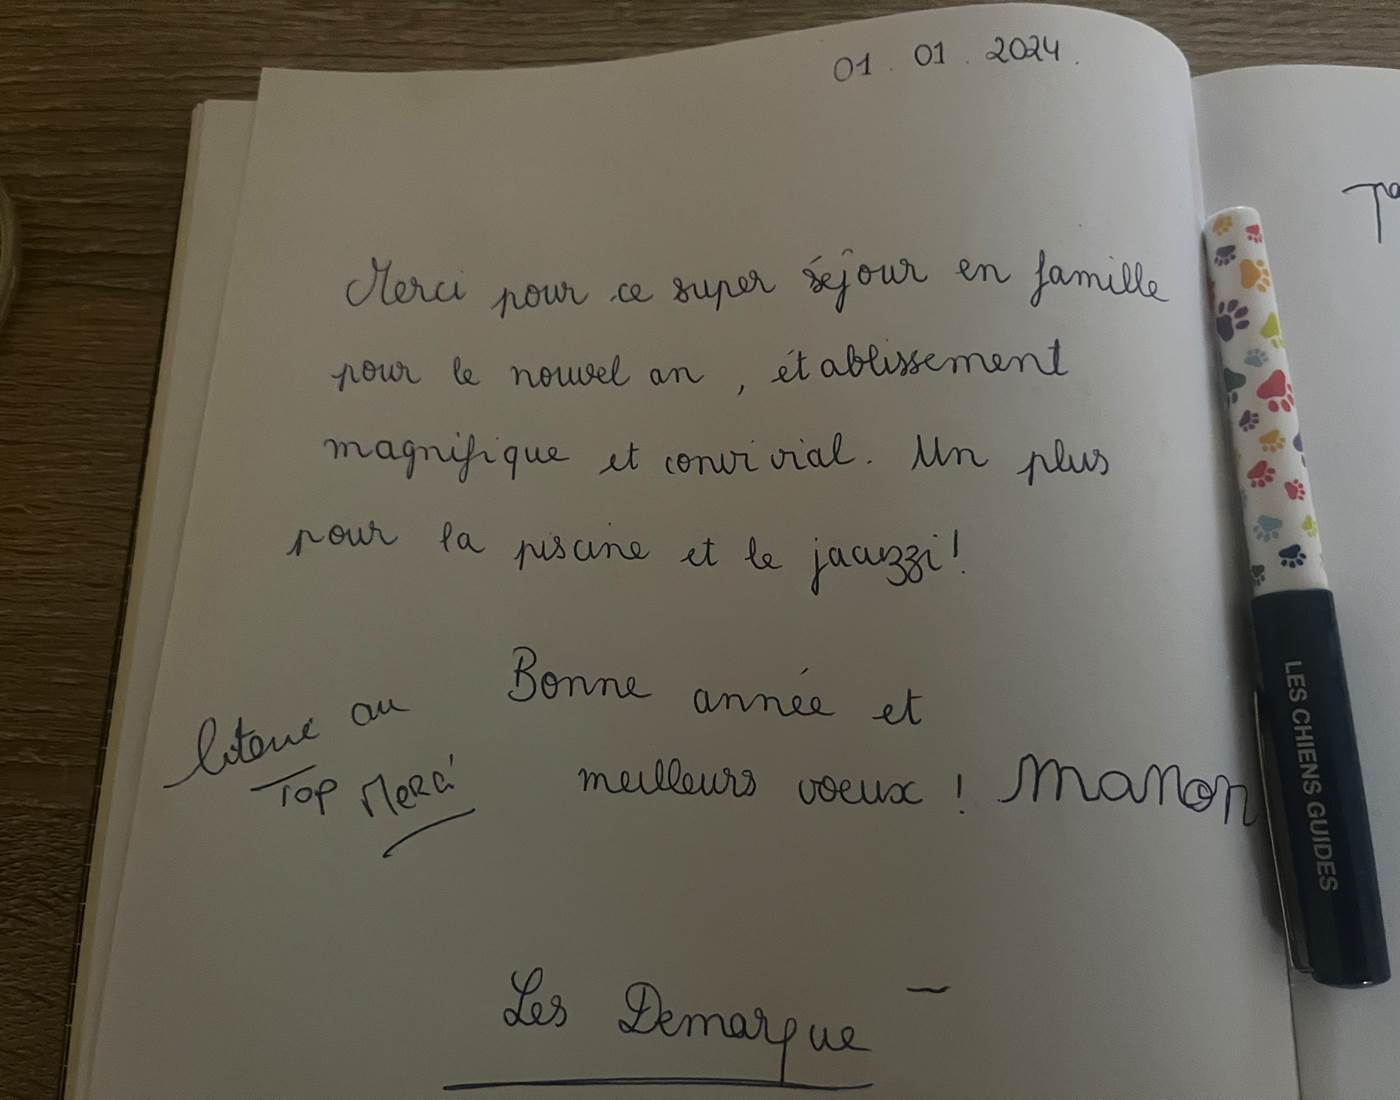 01.01.2024.
Merci pour ce super séjour en famille
pour le nouvel an, établissement
magnifique et convivial. Un plus
pour la piscine et le jacuzzi!
Bonne année et
meilleurs voeux! Manon
au
Top Merci
Les Demarque
LES CHIENS GUIDES